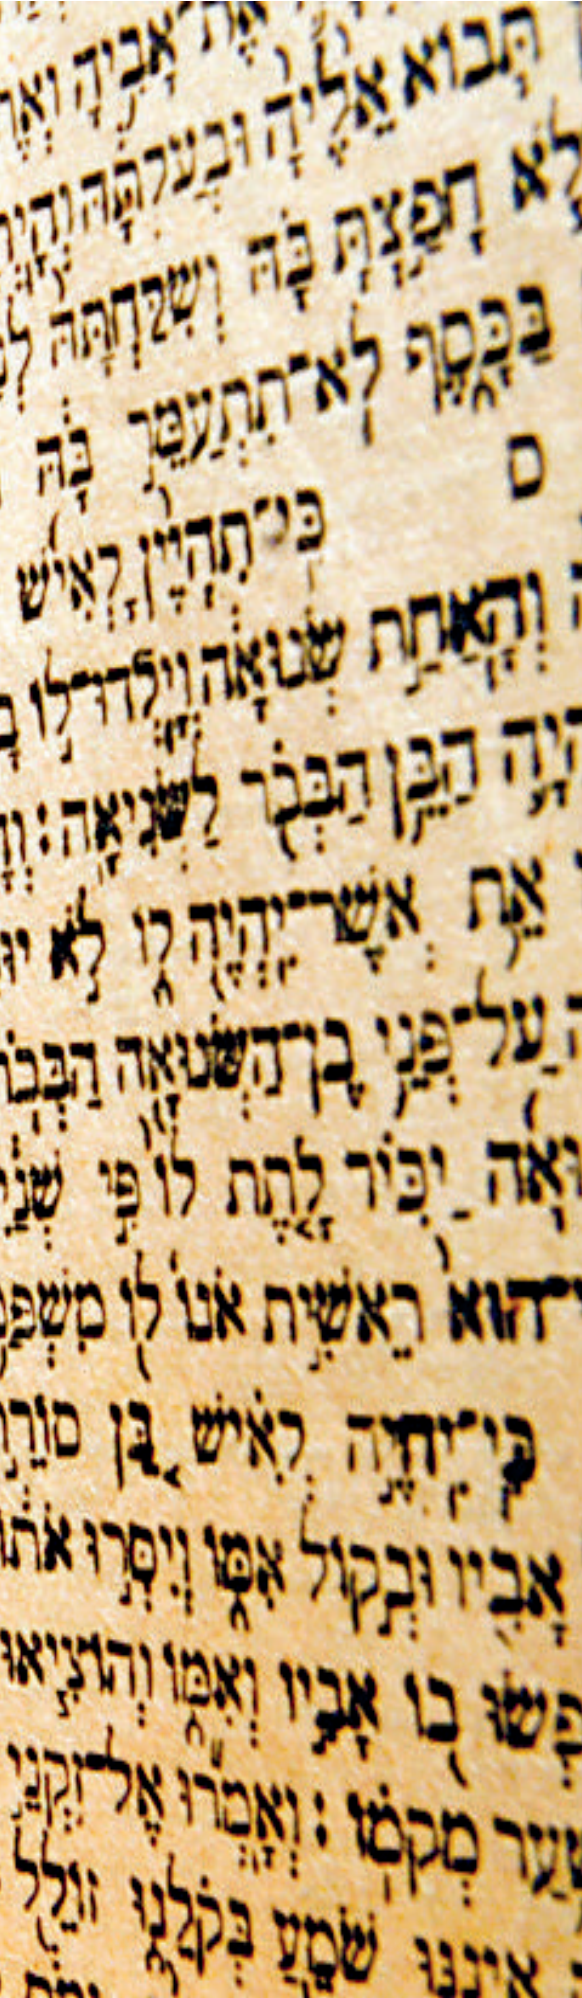 אֶת־אָבִיהָ
תָּבוֹא אֵלֶיהָ וּבְעַלְתָּהּ
לֹא חָפַצְתָּ בָּהּ וְשִׁלַּחְתָּהּ
בַּכָּסֶף לֹא־תִתְעַמֵּר בָּהּ
ס כִּי־תִהְיֶיןָ לְאִישׁ
וְהָאַחַת שְׂנוּאָה וְיָלְדוּ־לוֹ
הַבֵּן הַבְּכֹר לַשְּׂנִיאָה׃
אֵת אֲשֶׁר־יִהְיֶה לוֹ לֹא
עַל־פְּנֵי בֶן־הַשְּׂנוּאָה הַבְּכֹר
יַכִּיר לָתֶת לוֹ פִּי
הוּא רֵאשִׁית אֹנוֹ לוֹ
כִּי־יִהְיֶה לְאִישׁ בֵּן
אָבִיו וּבְקוֹל אִמּוֹ וְיִסְּרוּ אֹתוֹ
בוֹ אָבִיו וְאִמּוֹ וְהוֹצִיאוּ
שַׁעַר מְקֹמוֹ׃ וְאָמְרוּ אֶל־זִקְנֵי
אֵינֶנּוּ שֹׁמֵעַ בְּקֹלֵנוּ זוֹלֵל